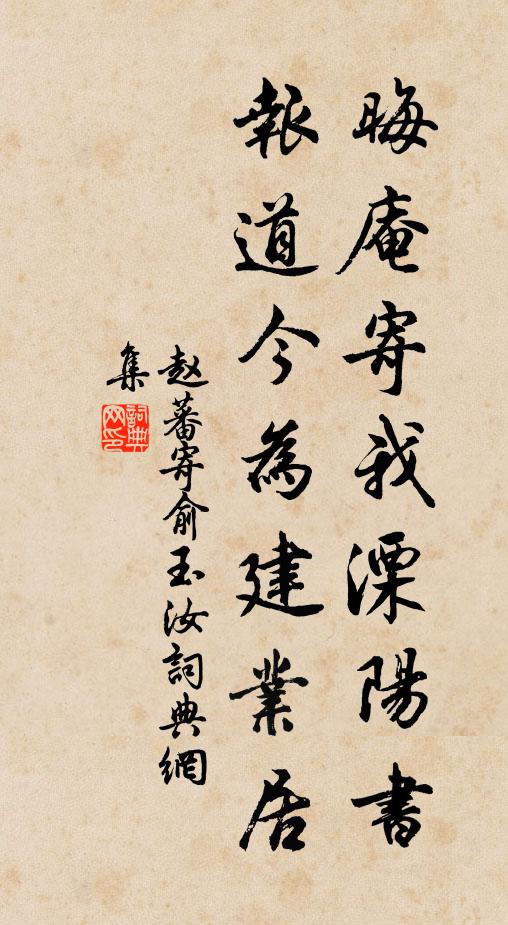 晦庵寄我溧陽書
報道今為建業居
赵蕃寄俞玉汝詞典網
集
詞典网印